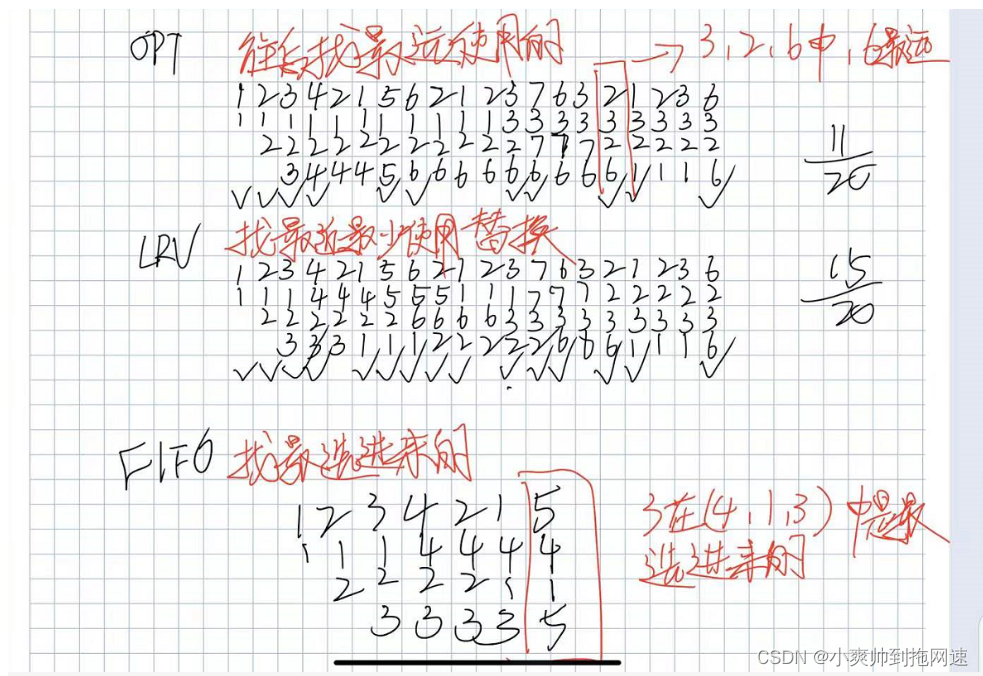 OPT 往后找最远使用的 → 3,2,6中,6最远
1 2 3 4 2 1 5 6 2 1 2 3 7 6 3 2 1 2 3 6
1 1 1 1 1 1 1 1 1 1 1 3 3 3 3 3 3 3 3 3
2 2 2 2 2 2 2 2 2 2 2 7 7 7 2 2 2 2 2
3 4 4 4 5 6 6 6 6 6 6 6 6 6 1 1 1 6
✓ ✓ ✓ ✓ ✓ ✓ ✓ ✓ ✓ ✓ ✓
11/20
LRU 找最近最少使用替换
1 2 3 4 2 1 5 6 2 1 2 3 7 6 3 2 1 2 3 6
1 1 1 4 4 4 5 5 5 1 1 1 7 7 7 2 2 2 2 2
2 2 2 2 2 2 6 6 6 6 3 3 3 3 3 3 3 3 3
3 3 3 1 1 1 2 2 2 2 2 6 6 6 1 1 1 6
✓ ✓ ✓ ✓ ✓ ✓ ✓ ✓ ✓ ✓ ✓ ✓ ✓ ✓ ✓
15/20
FIFO 找最选进来的
1 2 3 4 2 1 5
1 1 1 4 4 4 4
2 2 2 2 1 1
3 3 3 3 5
3在(4,1,3)中是最
选进来的
CSDN @小爽帅到拖网速